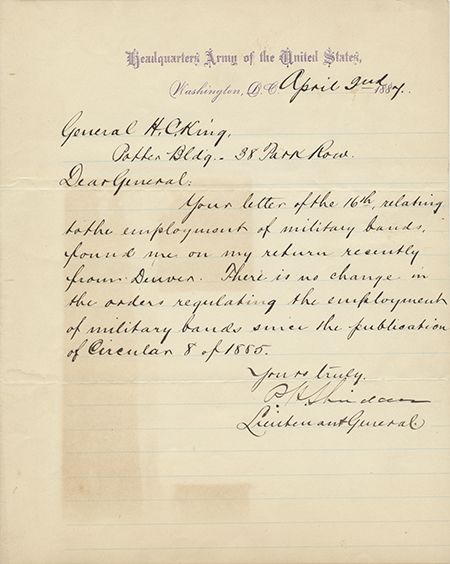 Headquarters Army of the United States,
Washington, D.C. April 2nd 1887.
General H.C. King,
Potter Bldg. - 38 Park Row.
Dear General:
Your letter of the 16th, relating
to the employment of military bands,
found me on my return recently
from Denver. There is no change in
the orders regulating the employment
of military bands since the publication
of Circular 8 of 1885.
Yours truly,
P.H. Sheridan
Lieutenant General.